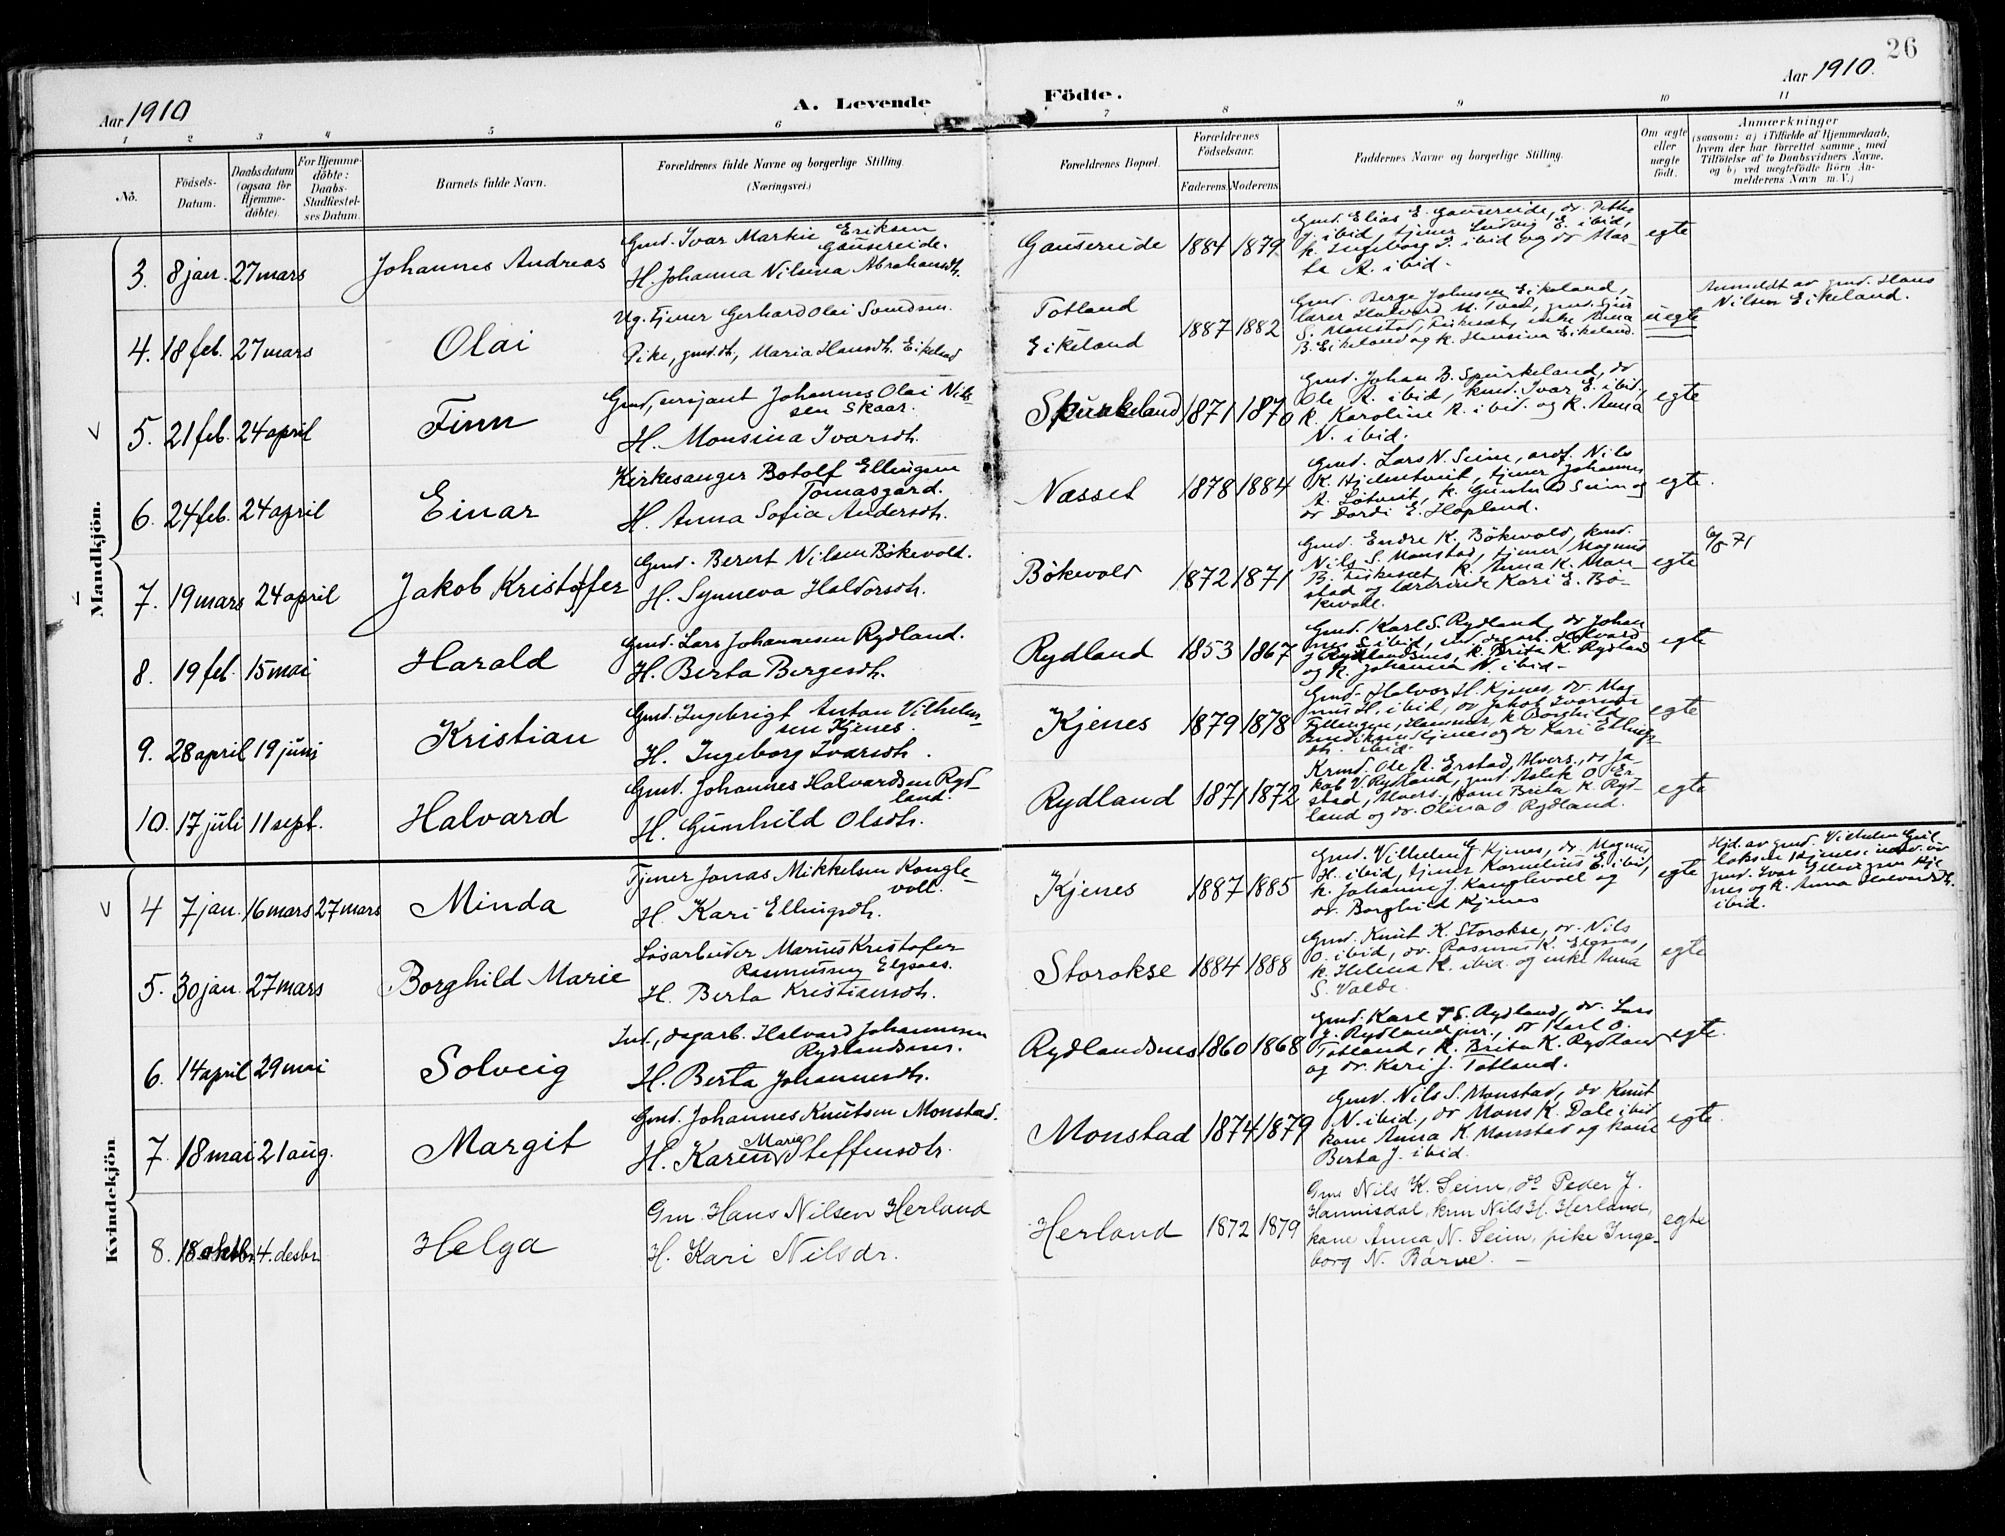 26
Aar 1910
A. Levende
Födte.
Aar 1910.
1 2 3 4 5 6 7 8 9 10 11
No.
Födsels-
Datum.
Daabsdatum
(ogsaa for
Hjemme-
döbte).
For Hjemme-
döbte:
Daabs-
Stadfæstel-
ses Datum.
Barnets fulde Navn.
Forældrenes fulde Navne og borgerlige Stilling.
(Næringsvei.)
Forældrenes Bopæl.
Forældrenes
Födselsaar.
Faderens. Moderens.
Faddernes Navne og borgerlige Stilling.
Om ægte
eller
uægte
födt.
Anmærkninger
(saasom: a) i Tilfælde af Hjemmedaab,
hvem der har forrettet samme, med
Tilföielse af to Daabsvidners Navne,
og b) ved uægtefödte Börn An-
melderens Navn m. V.)
Mandkjön.
3. 8 jan. 27 mars
Johannes Andreas
Gmd. Ivar Martin Eriksen
Gausereide.
H. Johanna Nilsina Abrahamsdtr.
Gausereide
1884 1879
Gmd. Elias E. Gausereide, dr.
J. ibid, tjener Ludvig E. ibid,
k. Ingeborg J. ibid og dr Mar-
ta A. ibid.
egte
4. 18 feb. 27 mars
Olai
Ug. tjener Gerhard Olai
Pike, gmd.dtr, Maria Hansdtr. Eikeland
Totland
Eikeland
1887 1882
Gmd. Berge Johnsen Eikeland,
lærer Halvard M. Tvedt, gmd.
S. Monstad, Fiskesæt, enke Anna
B. Eikeland og k. Hansina Eikeland.
uegte
Anmeldt av gmd. Hans
Nilsen Eikeland.
5. 21 feb. 24 april
Finn
Gmd, sersjant Johannes Olai Nil-
sen Skaar.
H. Monsina Ivarsdtr.
Spurkeland
1871 1870
Gmd. Johan B. Spurkeland, dr
Ole A. ibid, kmd. Ivar E. ibid,
k. Karoline R. ibid. og k. Anna
N. ibid.
egte
6. 24 feb. 24 april
Einar
Kirkesanger Botolf Ellingsen
Tomasgard.
H. Anna Sofia Andersdtr.
Næsset
1878 1884
Gmd. Lars N. Seim, Nils
K. Hjelmtveit, tjener Johannes
A. Lötveit, k. Gunhild Seim og
dr Dordi E. Hopland.
egte.
7. 19 mars 24 april
Jakob Kristofer
Gmd. Berent Nilsen Bökevold.
H. Synneva Haldorsdtr.
Bökevold
1872 1871
Gmd. Endre K. Bökevold, kmd.
Nils S. Monstad, tjener Magnus
B. Fiskesæt, k. Anna K. Mon-
stad og lærerinde Kari E. Bö-
kvoll.
egte
6/8 71
8. 19 feb. 15 mai
Harald
Gmd. Lars Johannesen Rydland.
H. Berta Bergesdtr.
Rydland
1853 1867
Gmd. Karl S. Rydland, dr Johan-
nes S ibid, ind. dagarb. Halvard
J Rydlandsnes, k. Brita K. Rydland
og k. Johanna N. ibid -
egte
9. 28 april 19 juni
Kristian
Gmd. Ingebrigt Anton Vilhelm-
sen Kjenes.
H. Ingeborg Ivarsdtr.
Kjenes
1879 1878
Gmd. Halvor H. Kjenes, dr. Mag-
nus H. ibid, dr Jakob Ivarsen
Fillingen, Hammer, k Borghild
Bendiksen Kjenes og dr Kari Ellings-
dtr. ibid.
egte
10. 17 juli 11 sept.
Halvard
Gmd. Johannes Halvardsen Ryd-
land.
H. Gunhild Olsdtr.
Rydland
1871 1872
Kmd. Ole A. Erstad, Alvers., dr Ja-
kob V. Rydland, gmd Aslak O. Er-
stad, Alvers., kone Brita K. Ryd-
land og dr. Olina O Rydland.
egte
Kvindekjön
4 7 jan. 16 mars 27 mars
Minda
Tjener Jonas Mikkelsen Kongle-
voll.
H. Kari Ellingsdtr.
Kjenes
1887 1885
Gmd. Vilhelm G Kjenes, dr. Magnus
H. ibid, tjener Kornelius E. ibid,
k. Johanne J. Konglevoll og
dr. Borghild Kjenes
egte
Hjd. av gmd. Vilhelm
Kjenes i
gmd. Ivar Ellingsen Kje-
nes og k. Anna Halvardsdtr.
ibid.
5. 30 jan. 27 mars
Borghild Marie
Lösarbeider Marius Kristofer
Rasmussen Elgsaas.
H. Berta Kristiansdtr.
Storokse
1884 1888
Gmd. Knut K. Storokse, dr. Nils
O. ibid, dr. Rasmus K. Elgsaas,
k. Helena K. ibid. og enke Anna
S. Valde.
egte
6. 14 april 29 mai
Solveig
Ind, dagarb. Halvard Johannesen
Rydlandsnes.
H. Berta Johannesdtr.
Rydlandsnes
1860 1868
Gmd. Karl S. Rydland, dr. Lars
J. Rydland jnr., dr Karl O.
Totland, k. Brita K. Rydland
og dr. Kari J. Totland.
egte.
7. 18 mai 21 aug.
Margit
Gmd. Johannes Knutsen Monstad.
Marie
H. Karen Steffensdtr.
Monstad
1874 1879
Gmd. Nils S. Monstad, dr Knut
N. ibid., dr Mons K. Dale ibid
kone Anna K. Monstad og kone
Berta J. ibid.
egte.
8. 18 oktbr. 4. desbr
Helga
Gm. Hans Nilsen Herland
H. Kari Nilsdr.
Herland
1872 1879
Gm Nils K. Seim, do Peder J.
Hannisdal, km Nils H. Herland,
kone Anna N. Seim, pike Inge-
borg N. Börve. -
egte